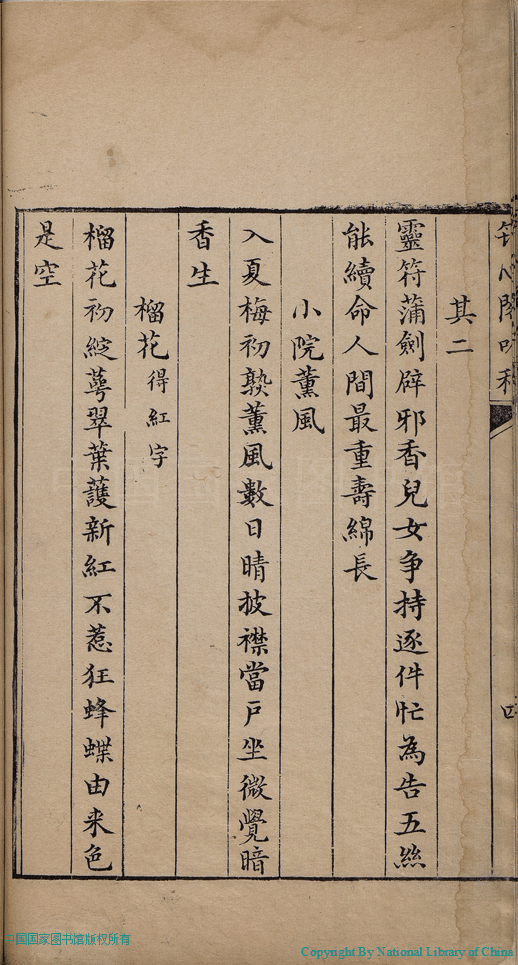 其二
靈符蒲劍辟邪香兒女争持逐件忙為告五絲
能續命人間最重壽綿長
小院薰風
入夏梅初熟薰風數日晴披襟當戶坐微覺暗
香生
榴花得紅字
榴花初綻萼翠葉護新紅不惹狂蜂蝶由来色
是空
四
中国国家图书馆版权所有
Copyright By National Library of China